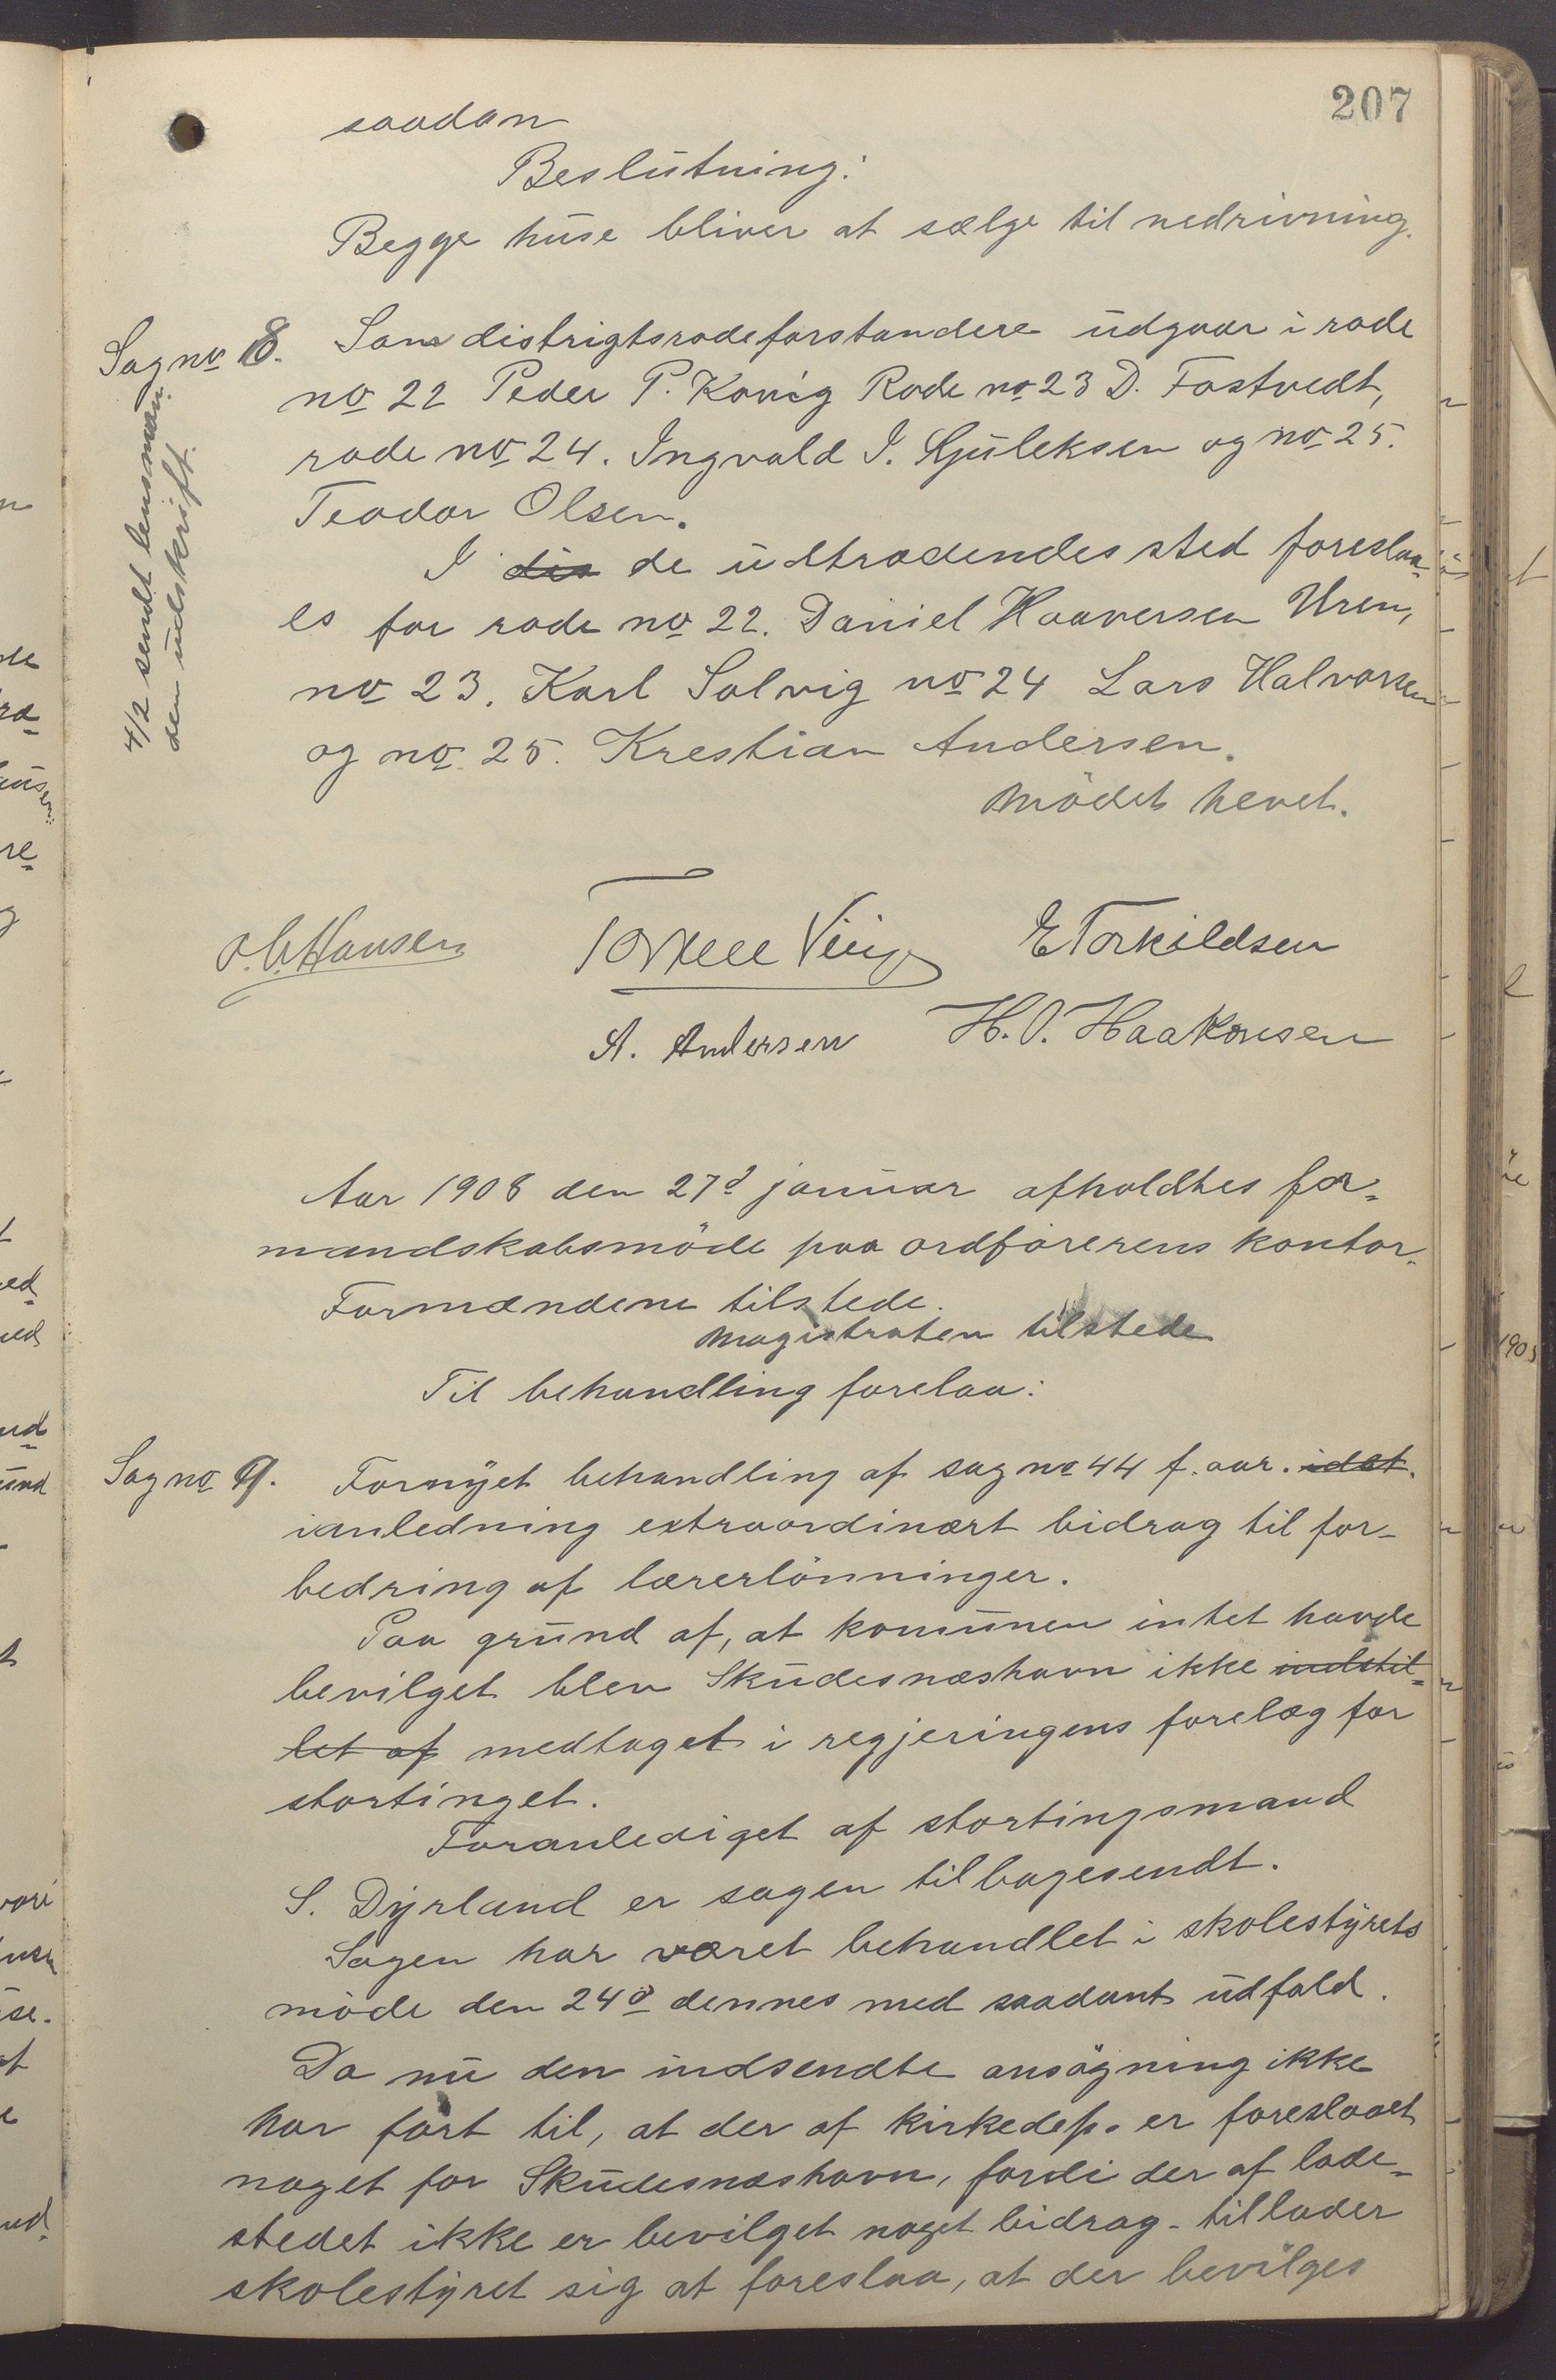 207
saadan
Beslutning:
Begge huse bliver at sælge til nedrivning.
Sag no 8. Som distrigtsrodeforstandere udgaar i rode
no 22 Peder P. Konig Rode no 23 D. Fostvedt,
rode no 24. Ingvald I. Hjuleksen og no 25.
Teodor Olsen.
4/2 sendt lensman
den udskrift.
I de udtrædendes sted foreslaa-
es for rode no 22. Daniel Haaversen Uren,
no 23. Karl Solvig no 24 Lars Halvorsen
og no 25. Krestian Andersen.
Mödet hevet.
O. C. Hansen Torkell Viig E Torkildsen
A. Andersen H. O. Haakonsen
Aar 1908 den 27d januar afholdtes for-
mandskabsmöde paa ordförerens kontor.
Formændene tilstede.
Magistraten tilstede
Til behandling forelaa:
Sag no 9. Fornyet behandling af sag no 44 f. aar. idet.
ianledning extraordinært bidrag til for-
bedring af lærerlönninger.
Paa grund af, at komunen intet havde
bevilget blev Skudesnæshavn ikke indstil-
let af medtaget i regjeringens forelæg for
stortinget.
Foranlediget af stortingsmand
S. Dyrland er sagen tilbagesendt.
Sagen har været behandlet i skolestyrets
möde den 24d dennes med saadant udfald.
Da nu den indsendte ansögning ikke
har fört til, at der af kirkedep. er foreslaaet
noget for Skudesnæshavn, fordi der af lade-
stedet ikke er bevilget noget bidrag - tillader
skolestyret sig at foreslaa, at der bevilges